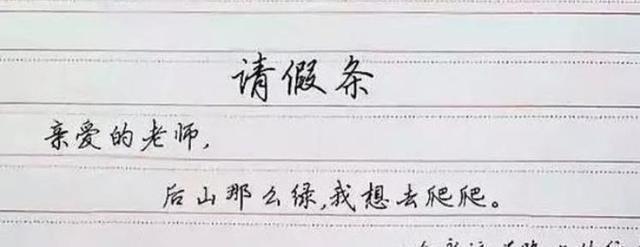 请假条
亲爱的老师，
后山那么绿，我想去爬爬。